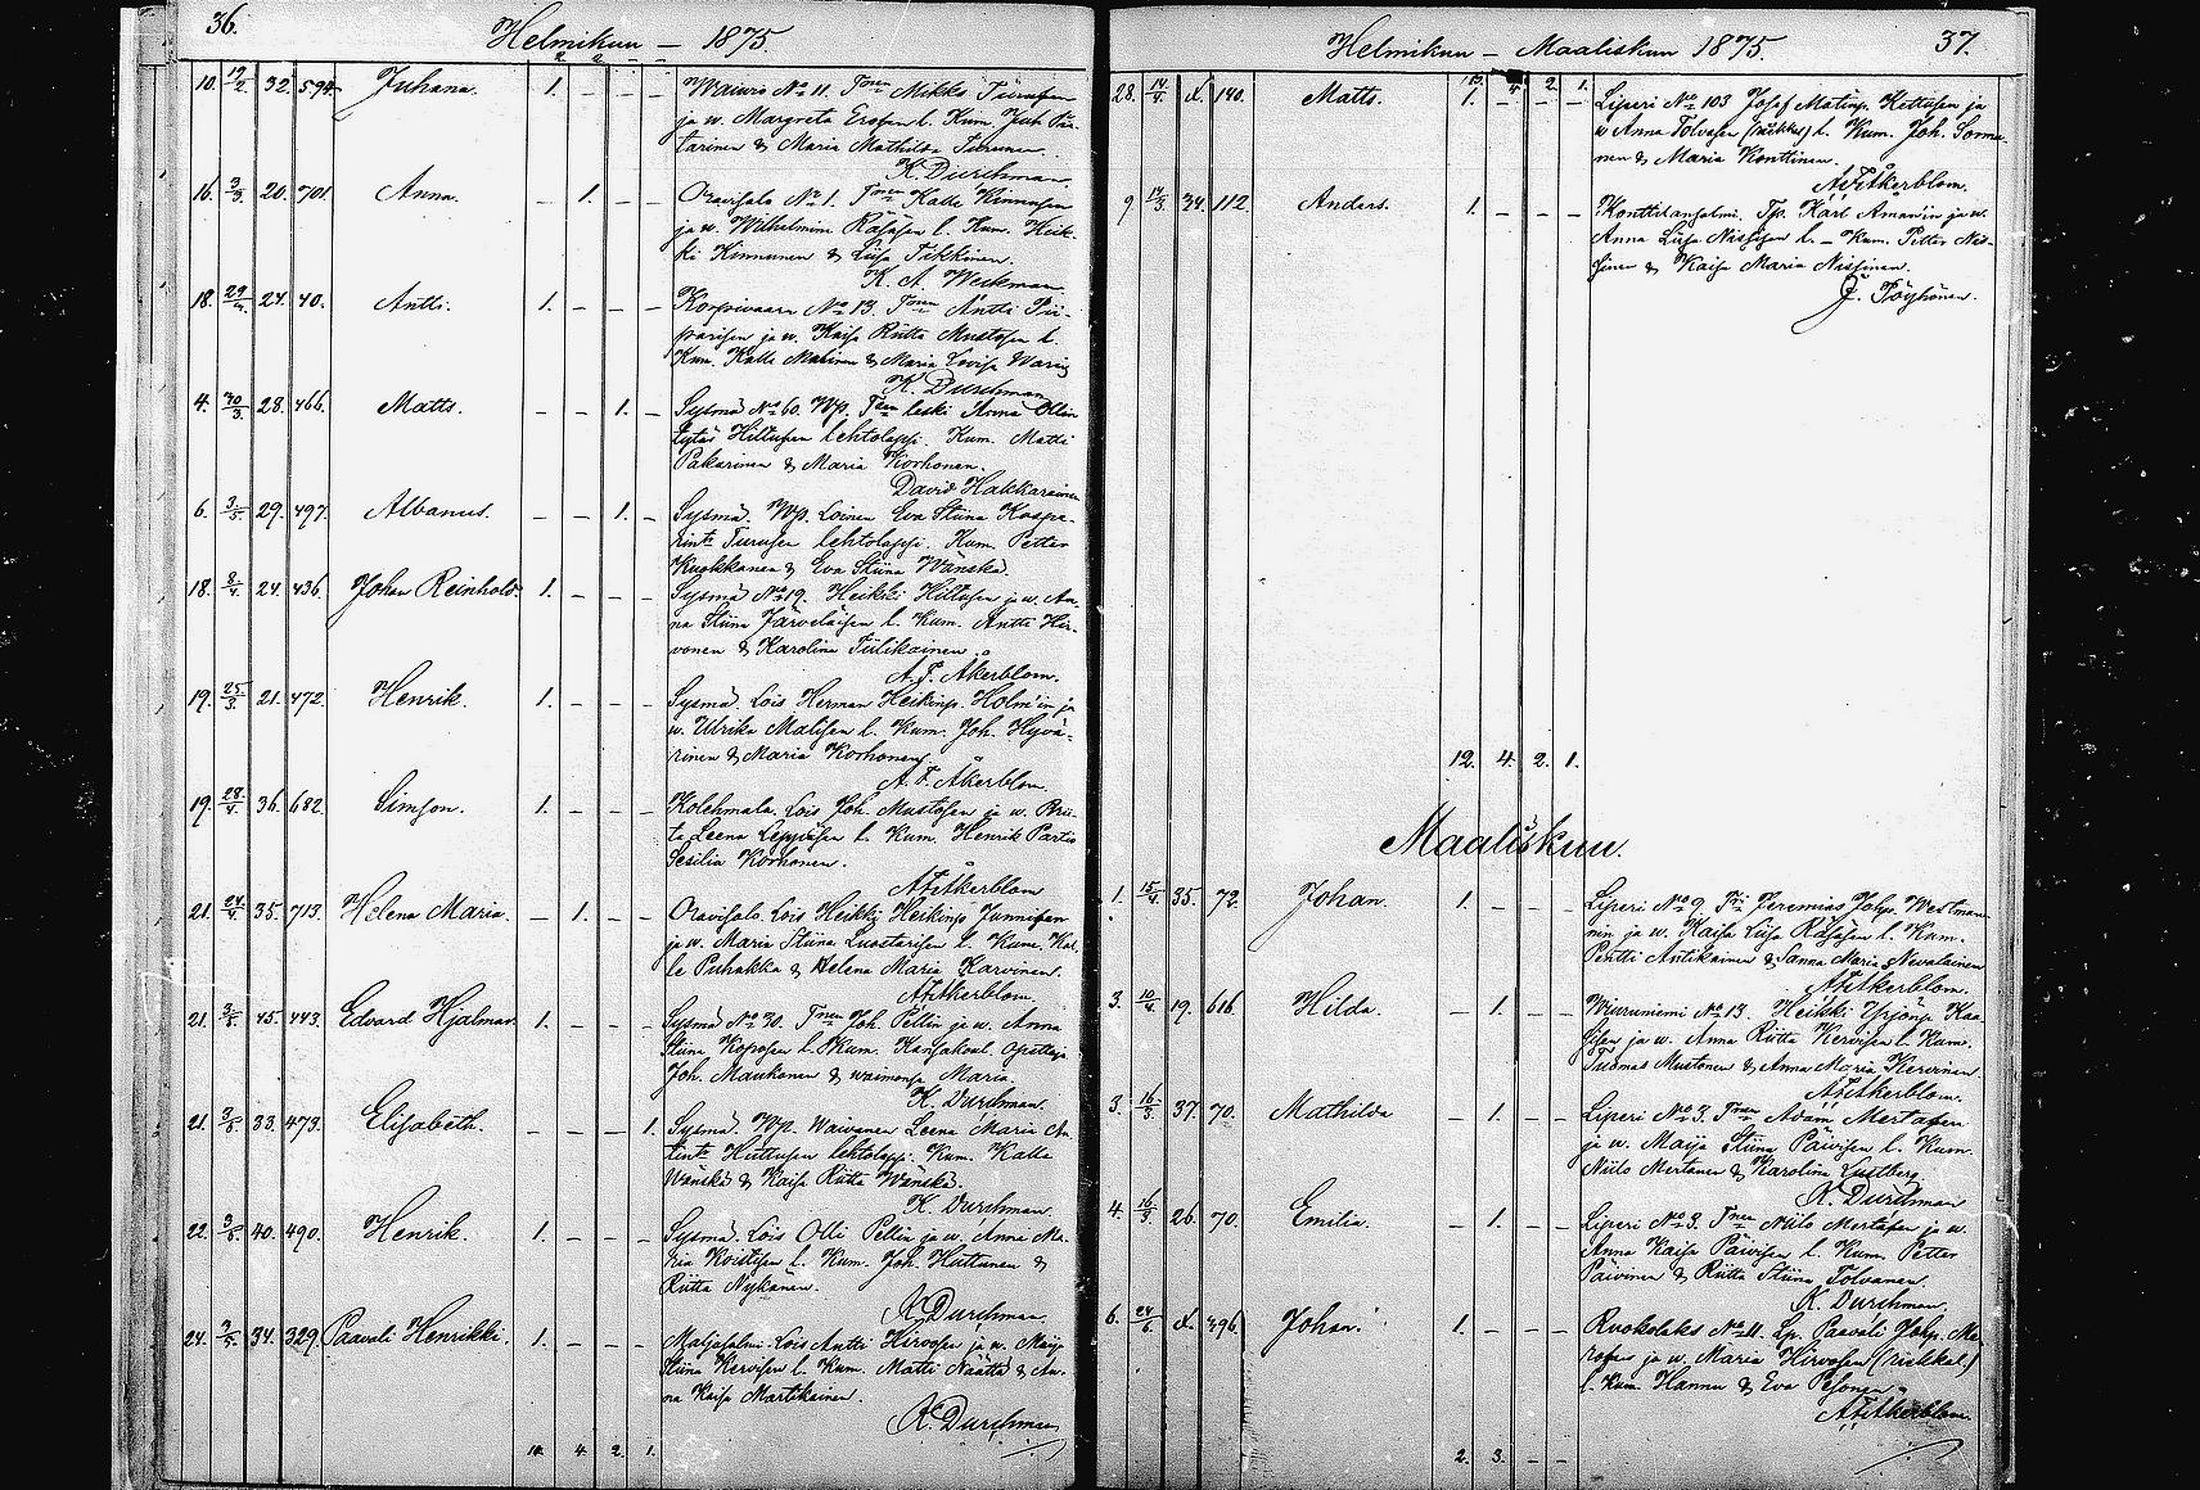 36.
Helmikuu – 1875.
2 2 – –
10. 19/2 32. 594. Juhana. 1. – – – Waiwio No 11. Tnen Mikko Turusen
ja w. Margreta Erosen l. Kum. Juh. Paa-
tarinen & Maria Mathilda Turunen.
K. Durchman.
16. 3/3. 20. 701. Anna. – 1. – – Oravisalo No 1. Tnen Kalle Kinnusen
ja w. Wilhelmina Räsäsen l. Kum. Heik-
ki Kinnunen & Liisa Tikkinen.
K. A. Weckman.
18. 29/4. 24. 40. Antti. 1. – – – Korpivaara No 13. Tnen Antti Pii-
parisen ja w. Kaisa Riitta Mustosen l.
Kum. Kalle Malinen & Maria Lovisa
K. Durchman
4. 30/3. 28. 466. Matts. – – 1. – Sysmä No 60. Wp. Tsen leski Anna Ollin
tytär Hiltusen lehtolapsi. Kum. Matti
Pakarinen & Maria Korhonen.
David Hakkarainen
6. 3/5. 29. 497. Albanus. – – 1. – Sysmä. Wp. Loinen Eva Stiina Kaspe-
rint. Turusen lehtolapsi. Kum. Petter
Kuokkanen & Eva Stiina Wänskä.
18. 8/4. 24. 436. Johan Reinhold. 1. – – – Sysmä No 19. Heikki Hiltusen ja w. An-
na Stiina Järveläisen l. Kum. Antti Hir-
vonen & Karolina Tiilikainen.
A. F. Åkerblom.
19. 25/3. 21. 472. Henrik. 1. – – – Sysmä. Lois Herman Heikinp. Holm'in ja
w. Ulrika Malisen l. Kum. Joh. Hyvä-
rinen & Maria Korhonen.
A. F. Åkerblom.
19. 28/4. 36. 682. Simson. 1. – – – Kolehmala. Lois Joh. Mustosen ja w. Brii-
ta Leena Leppäsen l. Kum. Henrik Partio
Sesilia Korhonen.
A F Åkerblom
21. 24/4. 35. 713. Helena Maria. – 1. – – Oravisalo. Lois Heikki Heikinp. Junnisen
ja w. Maria Stiina Luostarisen l. Kum. Kal-
le Puhakka & Helena Maria Karvinen.
A F Åkerblom.
21. 3/5. 45. 443. Edvard Hjalmar. 1. – – – Sysmä No 30. Tnen Joh. Pellin ja w. Anna
Stiina Koposen l. Kum. Kansakoul. opettaja
Joh. Maukonen & waimonsa Maria.
K. Durchman.
21. 3/5. 33. 473. Elisabeth. – – – 1. Sysmä. Wp. Waivanen Leena Maria An-
tint. Huttusen lehtolapsi. Kum. Kalle
Wänskä & Kaisa Riitta Wänskä.
K. Durchman.
22. 3/5. 40. 490. Henrik. 1. – – – Sysmä. Lois Olli Pellin ja w. Anna Ma-
ria Koistisen l. Kum. Joh. Huttunen &
Riitta Nykänen.
K. Durchman.
24. 3/5. 34. 329. Paavali Henrikki. 1. – – – Matjasalmi. Lois Antti Hirvosen ja w. Maija
Stiina Kervisen l. Kum. Matti Näättä & An-
na Kaisa Martikainen.
K. Durchman
4. 2. 1.
Helmikuu – Maaliskuu 1875.
37.
4 2. 1.
28. 14/4. d. 140. Matts. 1. – – – Liperi No 103 Josef Matinp. Kettusen ja
w Anna Tolvasen l. Kum. Joh. Sorma-
nen & Maria Konttinen.
A F Åkerblom.
9 14/3. 112. Anders. 1. – – – Konttilansalmi. Tp. Karl Aman'in ja w.
Anna Liisa Nissisen l. – Kum. Petter Nis-
sinen & Kaisa Maria Nissinen.
J. Pöyhönen.
12. 4. 2. 1.
Maaliskuu.
1. 15/4. 35. 72. Johan. 1. – – – Liperi No 9. Jeremias Johp. Westman-
nin ja w. Kaisa Liisa Räsäsen l. Kum.
Pentti Antikainen & Sanna Maria Nevalainen
A F Åkerblom.
3. 10/4. 19. 616. Hilda. – 1. – – Wiuruniemi No 13. Heikki Yrjönp. Kaa-
sisen ja w. Anna Riitta Kervisen l. Kum.
Tuomas Mustonen & Anna Maria Kervinen.
A F Åkerblom.
3. 16/3. 37. 70. Mathilda – 1. – – Liperi No 3. Tnen Adam Mertasen
ja w. Maija Stiina Päivisen l. Kum.
Niilo Mertanen & Karolina Lustberg.
K. Durchman
4. 16/3. 26. 70. Emilia. – 1. – – Liperi No 3. Tnen Niilo Mertasen ja w.
Anna Kaisa Päivisen l. Kum. Petter
Päivinen & Riitta Stiina Tolvanen.
K. Durchman.
6. 24/6. d. 396. Johan. 1. – – – Ruokolaks No 11. Lp. Paavali Johp. Ma-
rosen ja w. Maria Hirvosen
l. Kum. Hannu & Eva Pesonen.
A F Åkerblom.
2. 3. – –